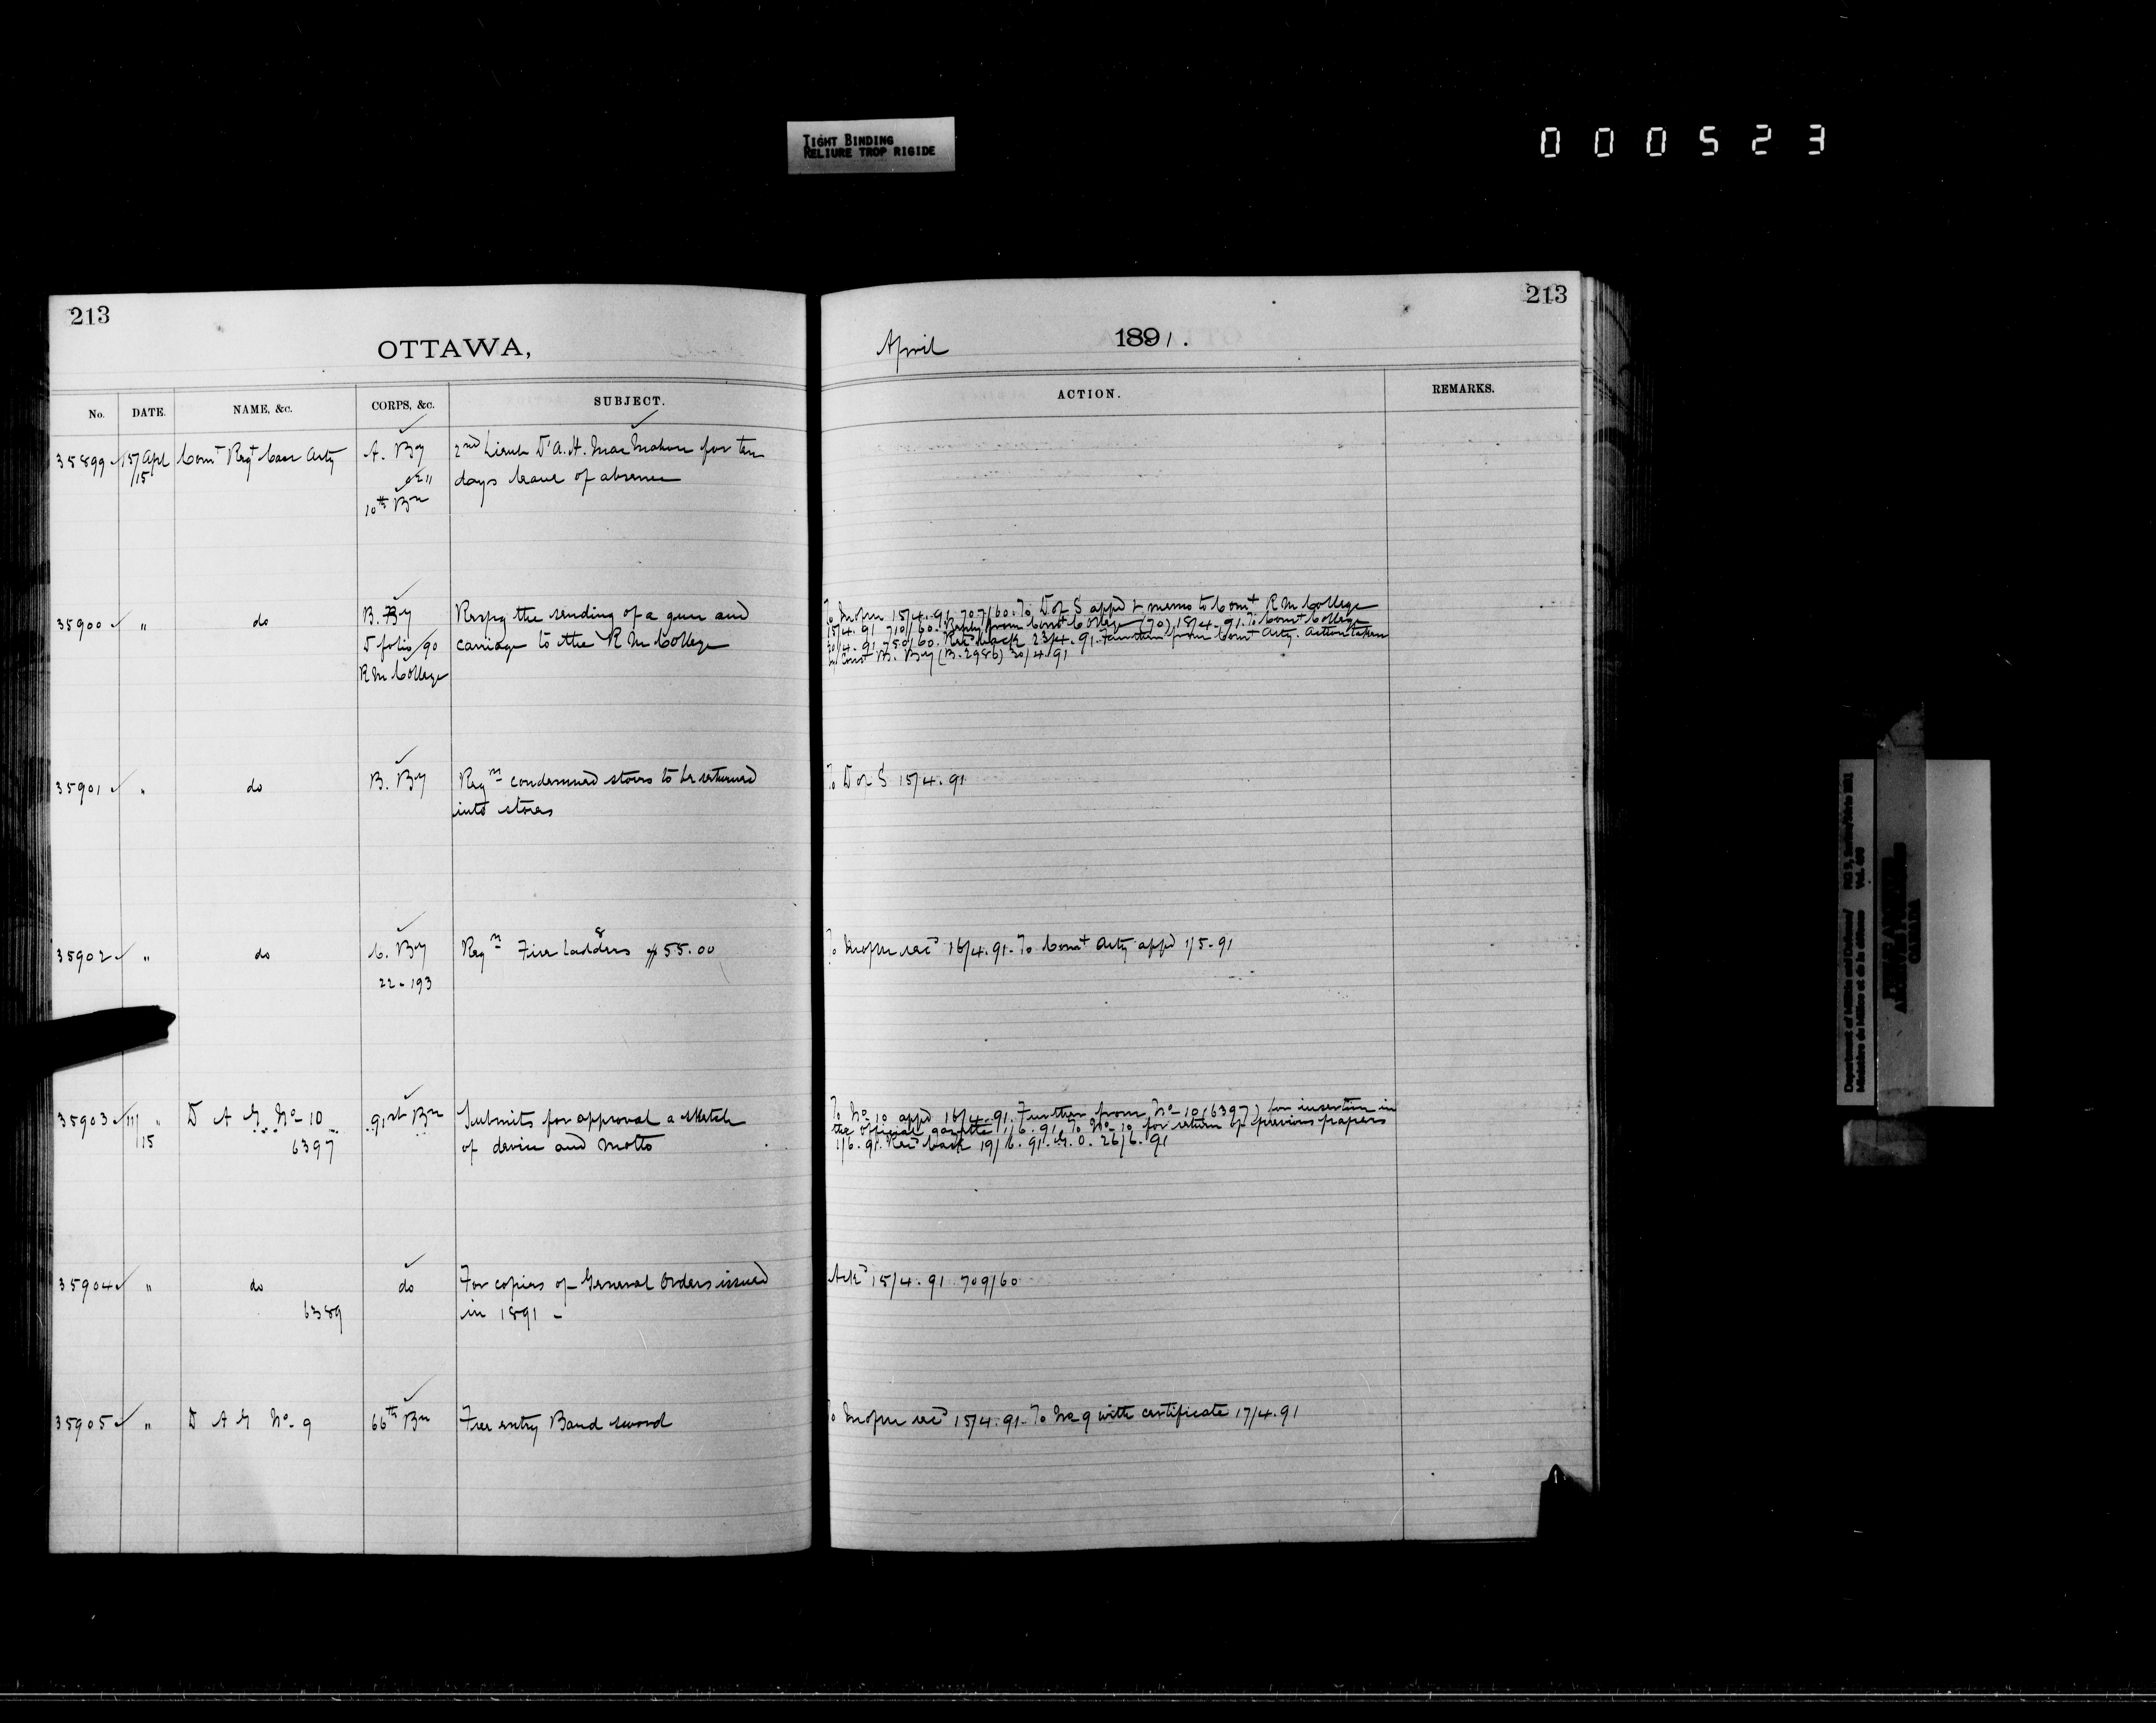 TIGHT BINDING
RELIURE TROP RIGIDE
000523
213
OTTAWA,
No. DATE. NAME, &c. CORPS, &c. SUBJECT.
35899 15/ Apl Comt Regt Can Arty A. By 2nd Lieut D'A. H. MacMahon for ten
/15 days leave of absence
10th Bn
35900 " do B. By Respg the sending of a gun and
D folio/90 carriage to the R M College
R M College
35901 " do B. By Reqn condemned stores to be returned
into stores
35902 " do C. By Reqn 8 Fire Ladders $55.00
22-193
35903 11/ " D A G No- 10 91st Bn Submits for approval a sketch
/15 6397 of device and motto
35904 " do do For copies of General Orders issued
6389 in 1891 -
35905 " D A G No- 9 66th Bn Free entry Band sword
213
April 1891.
ACTION. REMARKS.
15/4.91 707/60. To D of S appd & memo to Comt R M College
15/4.91 710/60. Reply from Comt College (70) 18/4.91. To Comt College
750/60. Recd back 23/4.91. Further from Comt Arty. Action taken
Comt B. By (B.2986) 30/4.91
To D of S 15/4.91
recd 16/4.91. To Comt Arty appd 1/5-91
To No 10 appd 16/4.91. Further from No- 10 (6397) for insertion in
the official gazette 1/6.91. To No- 10 for return of previous papers
1/6.91. Recd back 19/6.91. G.O. 26/6.91
Ackd 15/4.91 709/60
recd 15/4.91. To No 9 with certificate 17/4.91
Department of Militia and Defence/
Ministère de la Milice et de la défense